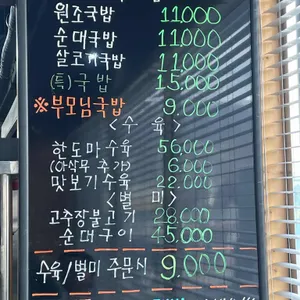 원조국밥 11,000
순대국밥 11,000
살코기국밥 11,000
(특)국밥 15,000
※부모님국밥 9,000
<수육>
한도마수육 56,000
(아삭무 추가) 6,000
맛보기수육 22,000
<별미>
고추장불고기 28,000
순대구이 45,000
수육/별미 주문시 9,000